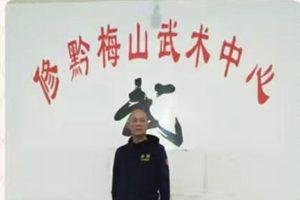 修黔梅山武术中心
武